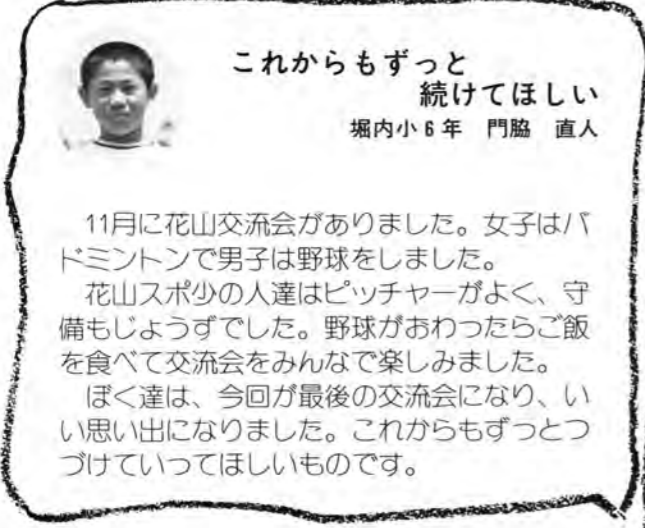 これからもずっと
続けてほしい
堀内小6年 門脇 直人
11月に花山交流会がありました。女子はバ
ドミントンで男子は野球をしました。
花山スポ少の人達はピッチャーがよく、守
備もじょうずでした。野球がおわったらご飯
を食べて交流会をみんなで楽しみました。
ぼく達は、今回が最後の交流会になり、い
い思い出になりました。これからもずっとつ
づけていってほしいものです。